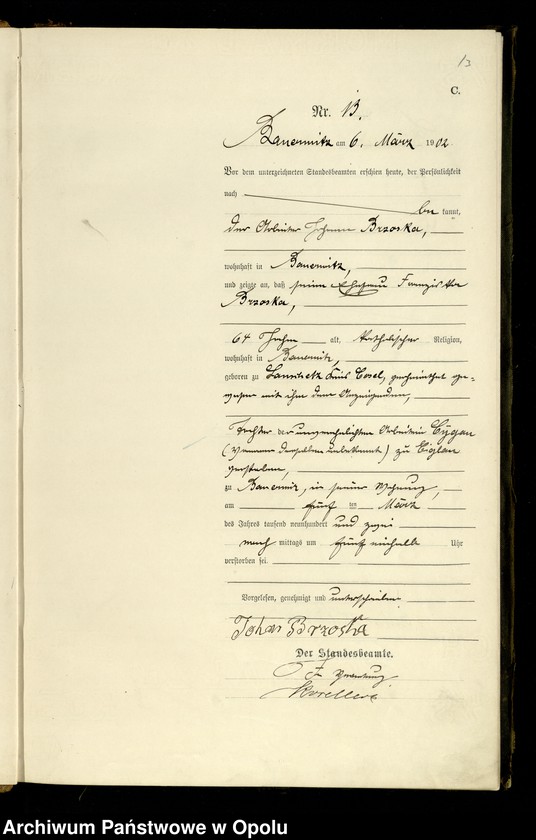 13
C.
Nr. 13.
Bauerwitz am 6. März 1902
Vor dem unterzeichneten Standesbeamten erschien heute, der Persönlichkeit
nach
be kannt,
der Arbeiter Johann Brzoska,
wohnhaft in Bauerwitz,
und zeigte an, daß seine Ehefrau Franziska
Brzoska,
64 Jahre alt, katholischer Religion,
wohnhaft in Bauerwitz,
geboren zu Kreis Cosel, verheirathet ge-
wesen mit ihm dem Anzeigenden,
Tochter der unverehelichten Arbeiterin Cygan
(Vorname derselben unbekannt) zu
verstorben,
zu Bauerwitz, in seiner Wohnung,
am fünf ten März
des Jahres tausend neunhundert und zwei
nach mittags um fünf einhalb Uhr
verstorben sei.
Vorgelesen, genehmigt und unterschrieben
Johan Brzoska
Der Standesbeamte.
In Vertretung
Archiwum Państwowe w Opolu